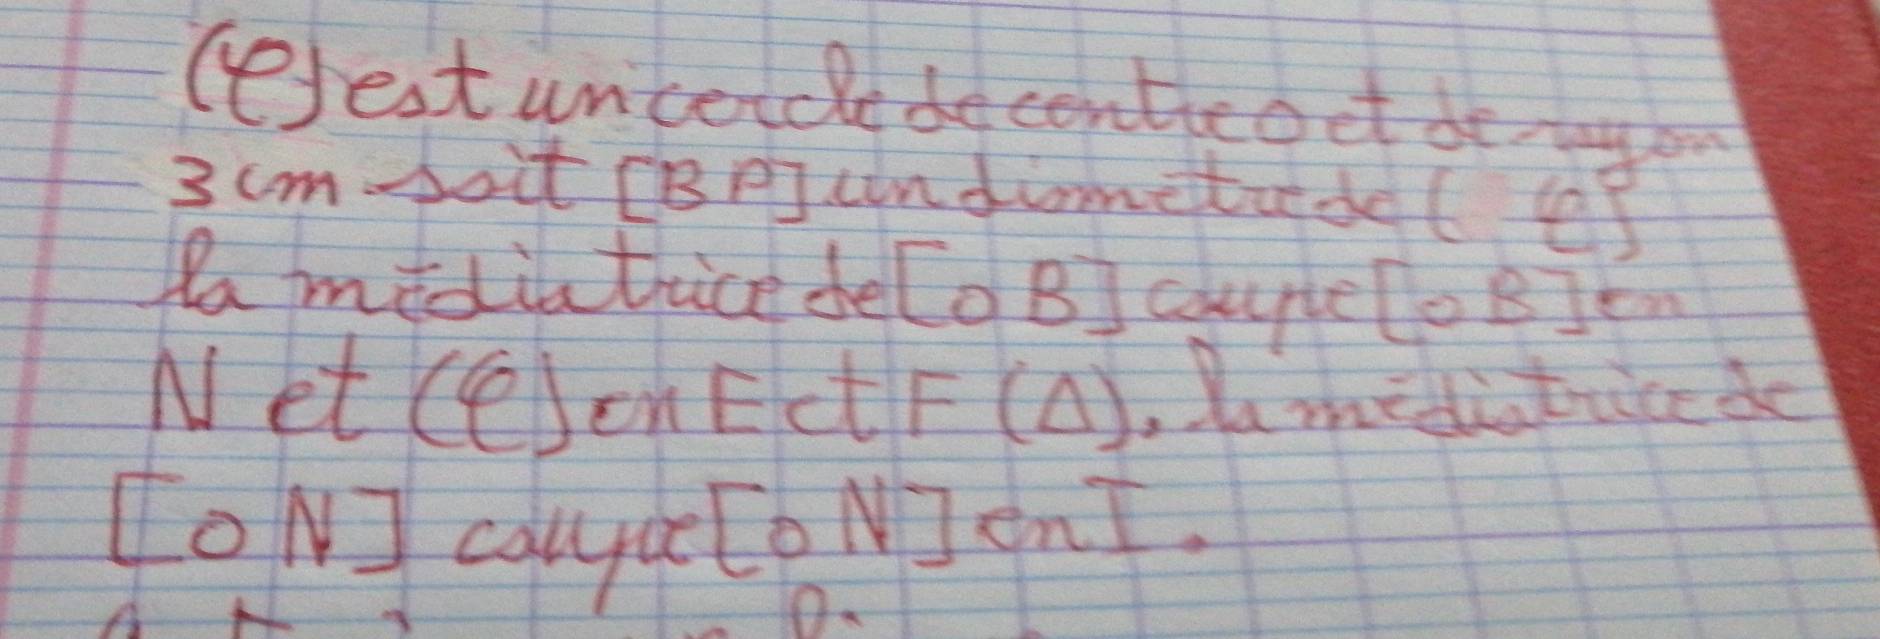 (ℓ) est un cercle de centre O et de rayon
3 cm soit [BP] un diamètre de ( ℓ)
la médiatrice de [OB] coupe [OB] en
N et (ℓ) en E et F (Δ), la médiatrice de
[ON] coupe [ON] en I.